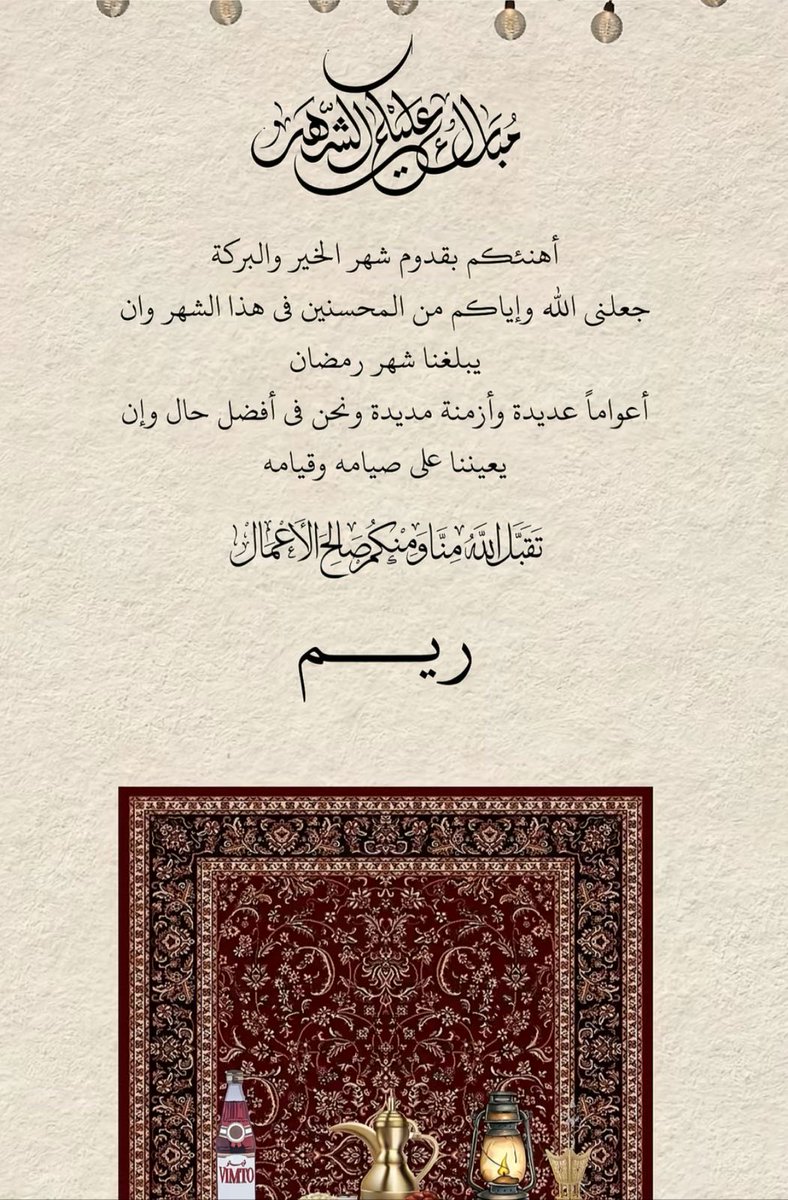 مُبَارَكٌ عَلَيْكُمُ الشَّهْر
أهنئكم بقدوم شهر الخير والبركة
جعلنى الله وإياكم من المحسنين فى هذا الشهر وان
يبلغنا شهر رمضان
أعواماً عديدة وأزمنة مديدة ونحن فى أفضل حال وإن
يعيننا على صيامه وقيامه
تَقَبَّلَ اللَّهُ مِنَّا وَمِنْكُمْ صَالِحَ الأَعْمَال
ريـــــم
ڤيمتو
VIMTO